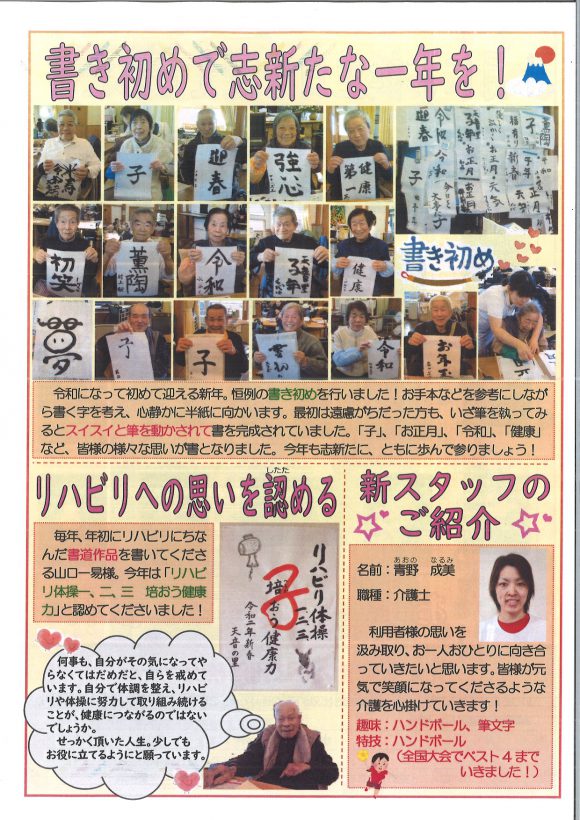 書き初めで志新たな一年を！
子
迎春
強い心
健康第一
初笑
薫陶
令和
天音の里
子年
健康
夢
子
子
令和
お年玉
書き初め
令和になって初めて迎える新年。恒例の書き初めを行いました！お手本などを参考にしなが
ら書く字を考え、心静かに半紙に向かいます。最初は遠慮がちだった方も、いざ筆を執ってみ
るとスイスイと筆を動かされて書を完成されていました。「子」、「お正月」、「令和」、「健康」
など、皆様の様々な思いが書となりました。今年も志新たに、ともに歩んで参りましょう！
したた
リハビリへの思いを認める
毎年、年初にリハビリにちな
んだ書道作品を書いてくださ
る山口一易様。今年は「リハビ
リ体操一、二、三　培おう健康
力」と認めてくださいました！
リハビリ体操
一二三
子
培おう健康力
令和二年新春
天音の里
何事も、自分がその気になってや
らなくてはだめだと、自らを戒めて
います。自分で体調を整え、リハビ
リや体操に努力して取り組み続ける
ことが、健康につながるのではない
でしょうか。
せっかく頂いた人生。少しでも
お役に立てるようにと願っています。
新スタッフの
ご紹介
あおの　なるみ
名前：青野　成美
職種：介護士
利用者様の思いを
汲み取り、お一人おひとりに向き合
っていきたいと思います。皆様が元
気で笑顔になってくださるような
介護を心掛けていきます！
趣味：ハンドボール、筆文字
特技：ハンドボール
（全国大会でベスト４まで
いきました！）